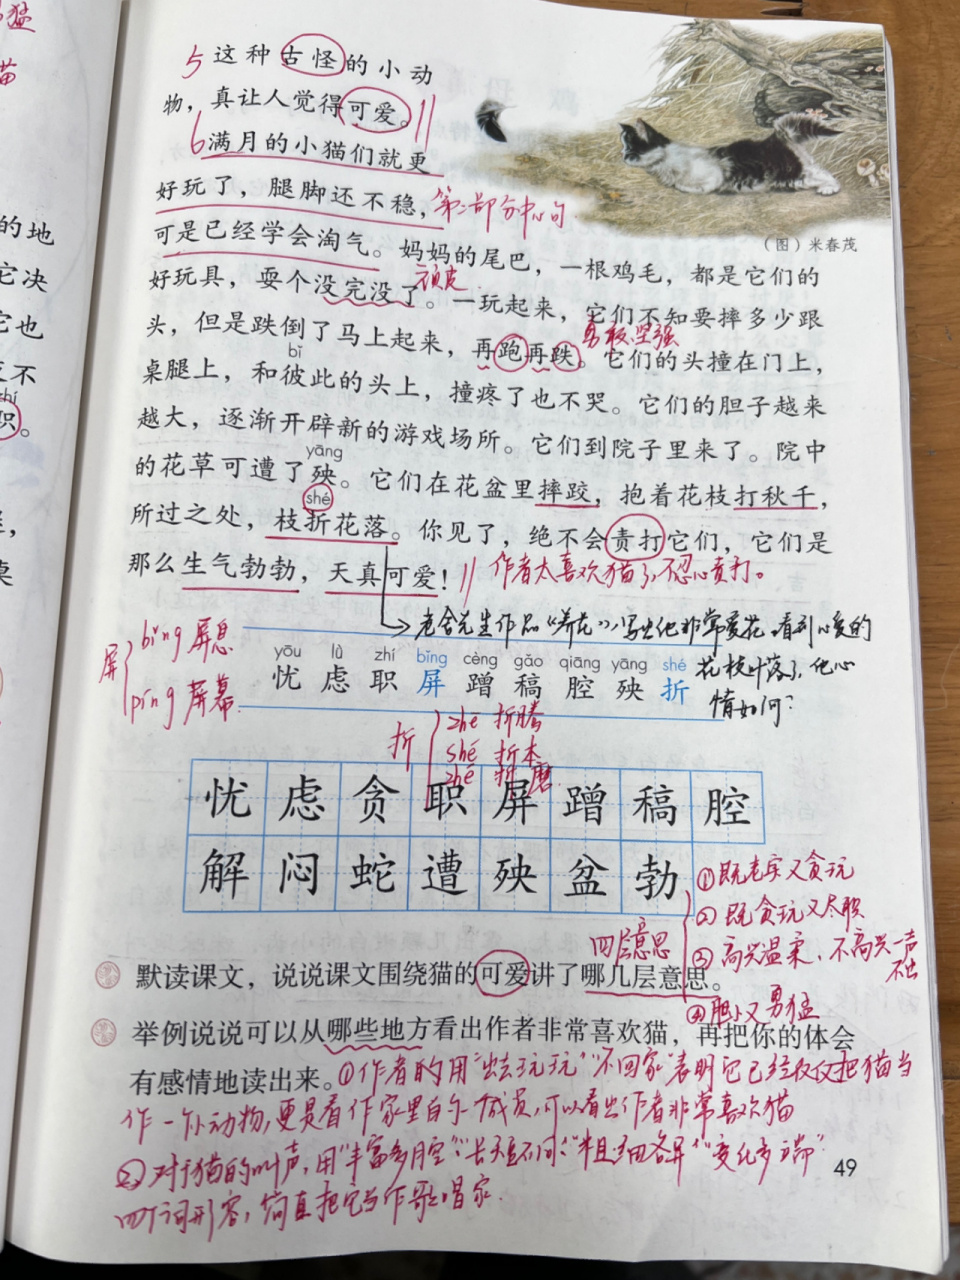 猛
猫
的地
它决
它也
不
职。
5 这种古怪的小动
物，真让人觉得可爱。
6 满月的小猫们就更
好玩了，腿脚还不稳，
第二部分中心句
可是已经学会淘气。妈妈的尾巴，一根鸡毛，都是它们的
（图）米春茂
好玩具，耍个没完没了。一玩起来，它们不知要摔多少跟
顽皮
头，但是跌倒了马上起来，再跑再跌。它们的头撞在门上，
勇敢坚强
bǐ
桌腿上，和彼此的头上，撞疼了也不哭。它们的胆子越来
越大，逐渐开辟新的游戏场所。它们到院子里来了。院中
yāng
的花草可遭了殃。它们在花盆里摔跤，抱着花枝打秋千，
shé
所过之处，枝折花落。你见了，绝不会责打它们，它们是
那么生气勃勃，天真可爱！
作者太喜欢猫了，不忍心责打。
老舍先生作品《养花》，写出他非常爱花，看到心爱的
花枝叶落了，他心
情如何？
屏 bǐng 屏息
píng 屏幕
yōu lǜ zhí bǐng cèng gǎo qiāng yāng shé
忧 虑 职 屏 蹭 稿 腔 殃 折
折 zhe 折腾
shé 折本
zhé 折磨
忧 虑 贪 职 屏 蹭 稿 腔
解 闷 蛇 遭 殃 盆 勃
①既老实又贪玩
②既贪玩又尽职
③高兴温柔，不高兴一声
不出
④胆小又勇猛
四层意思
默读课文，说说课文围绕猫的可爱讲了哪几层意思。
举例说说可以从哪些地方看出作者非常喜欢猫，再把你的体会
有感情地读出来。
①作者的用“出去玩玩”“不回家”表明它已经仅仅把猫当
作一个小动物，更是看作家里的一个成员，可以看出作者非常喜欢猫
②对于猫的叫声，用“丰富多腔”“长短不同”“粗细各异”“变化多端”
四个词形容，简直把它当作歌唱家.
49